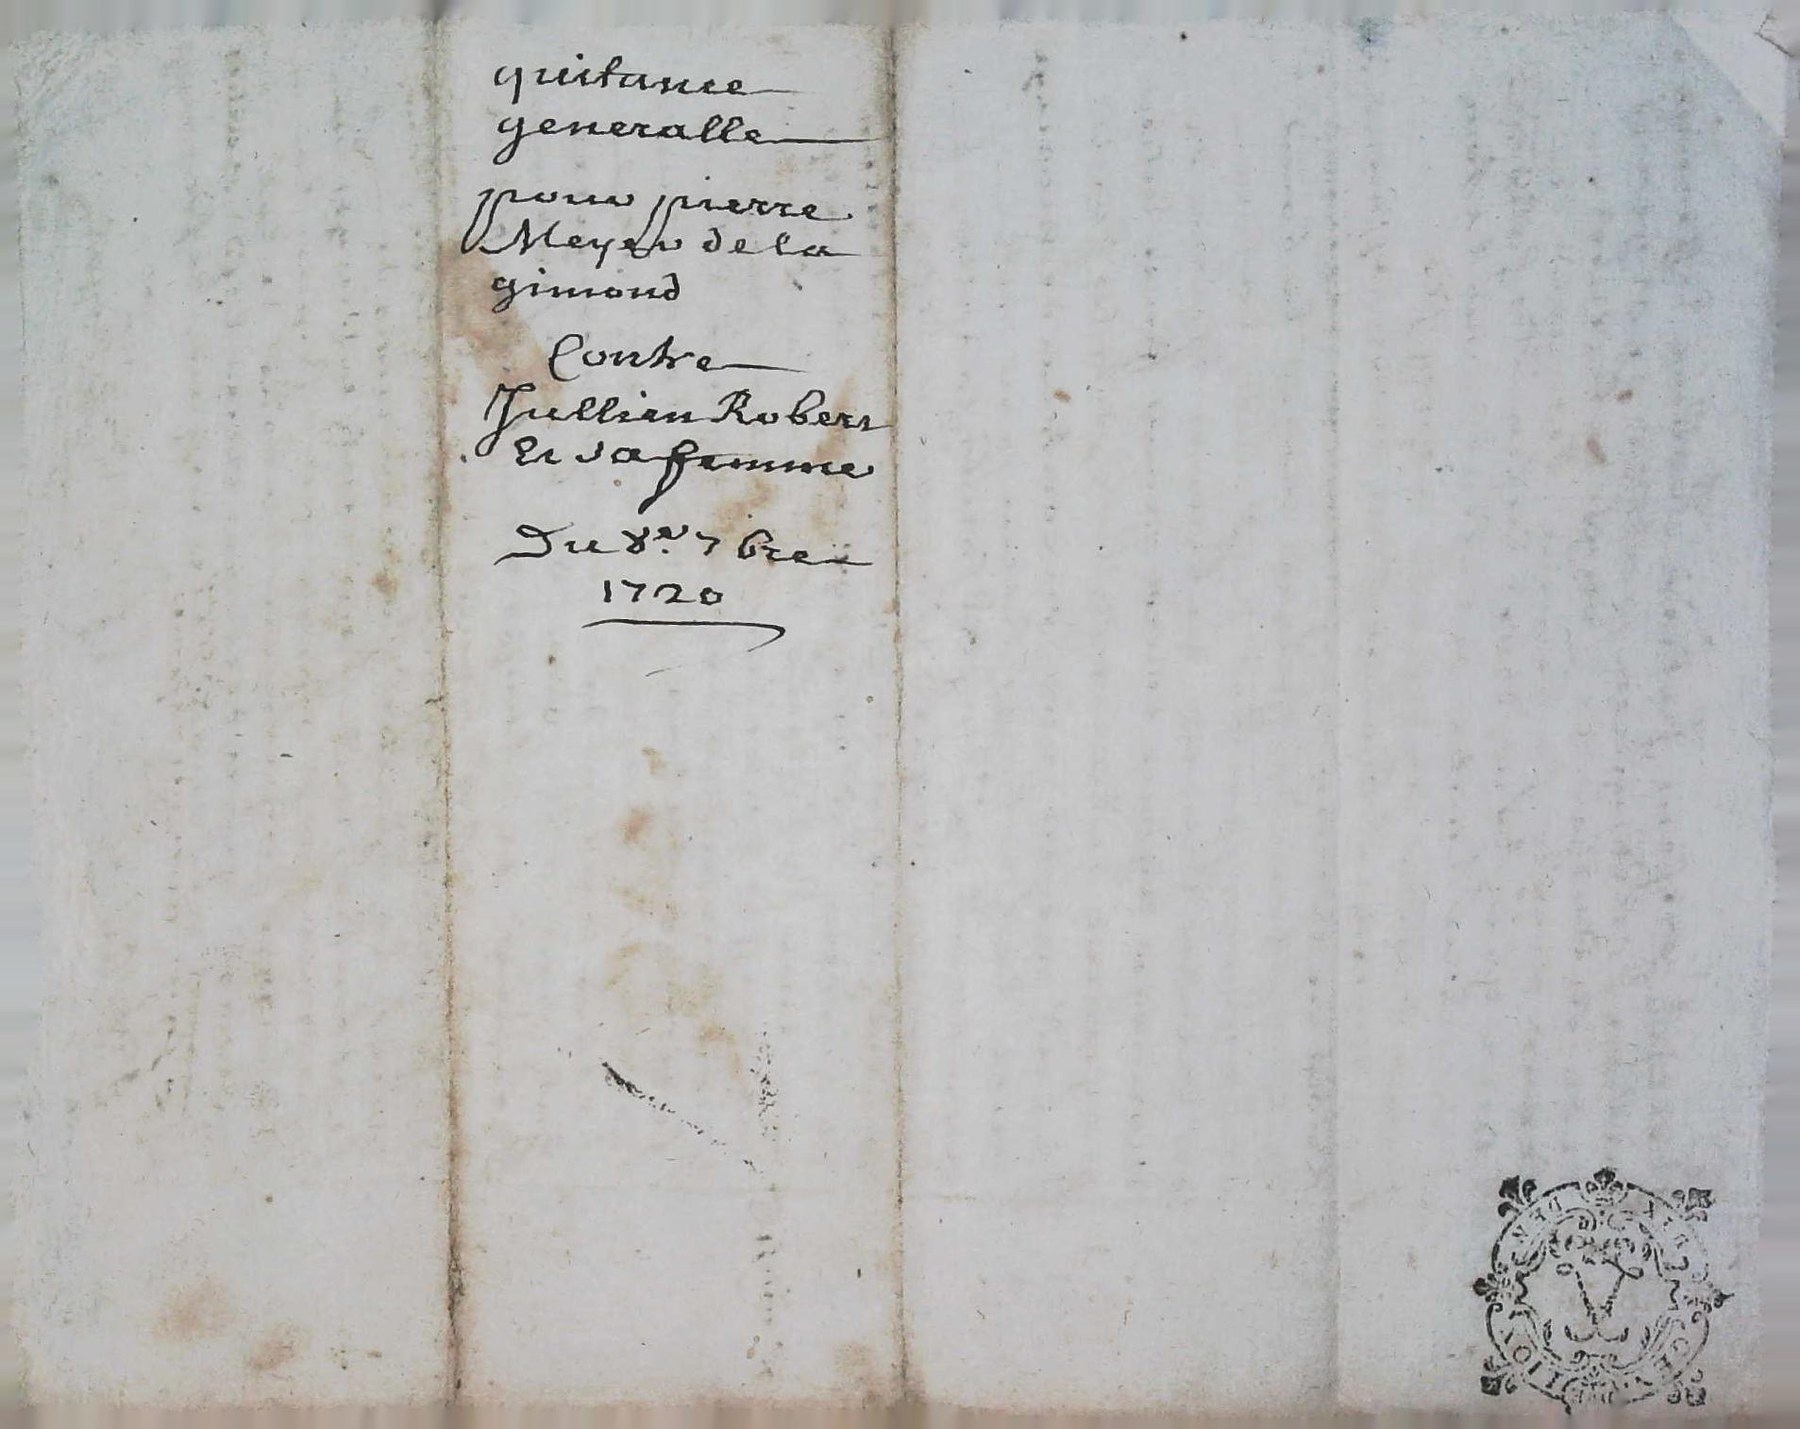 quitance
generalle
pour pierre
Meyer de la
gimond
Contre
Jullien Robert
Et sa femme
Du 8e. 7bre
1720